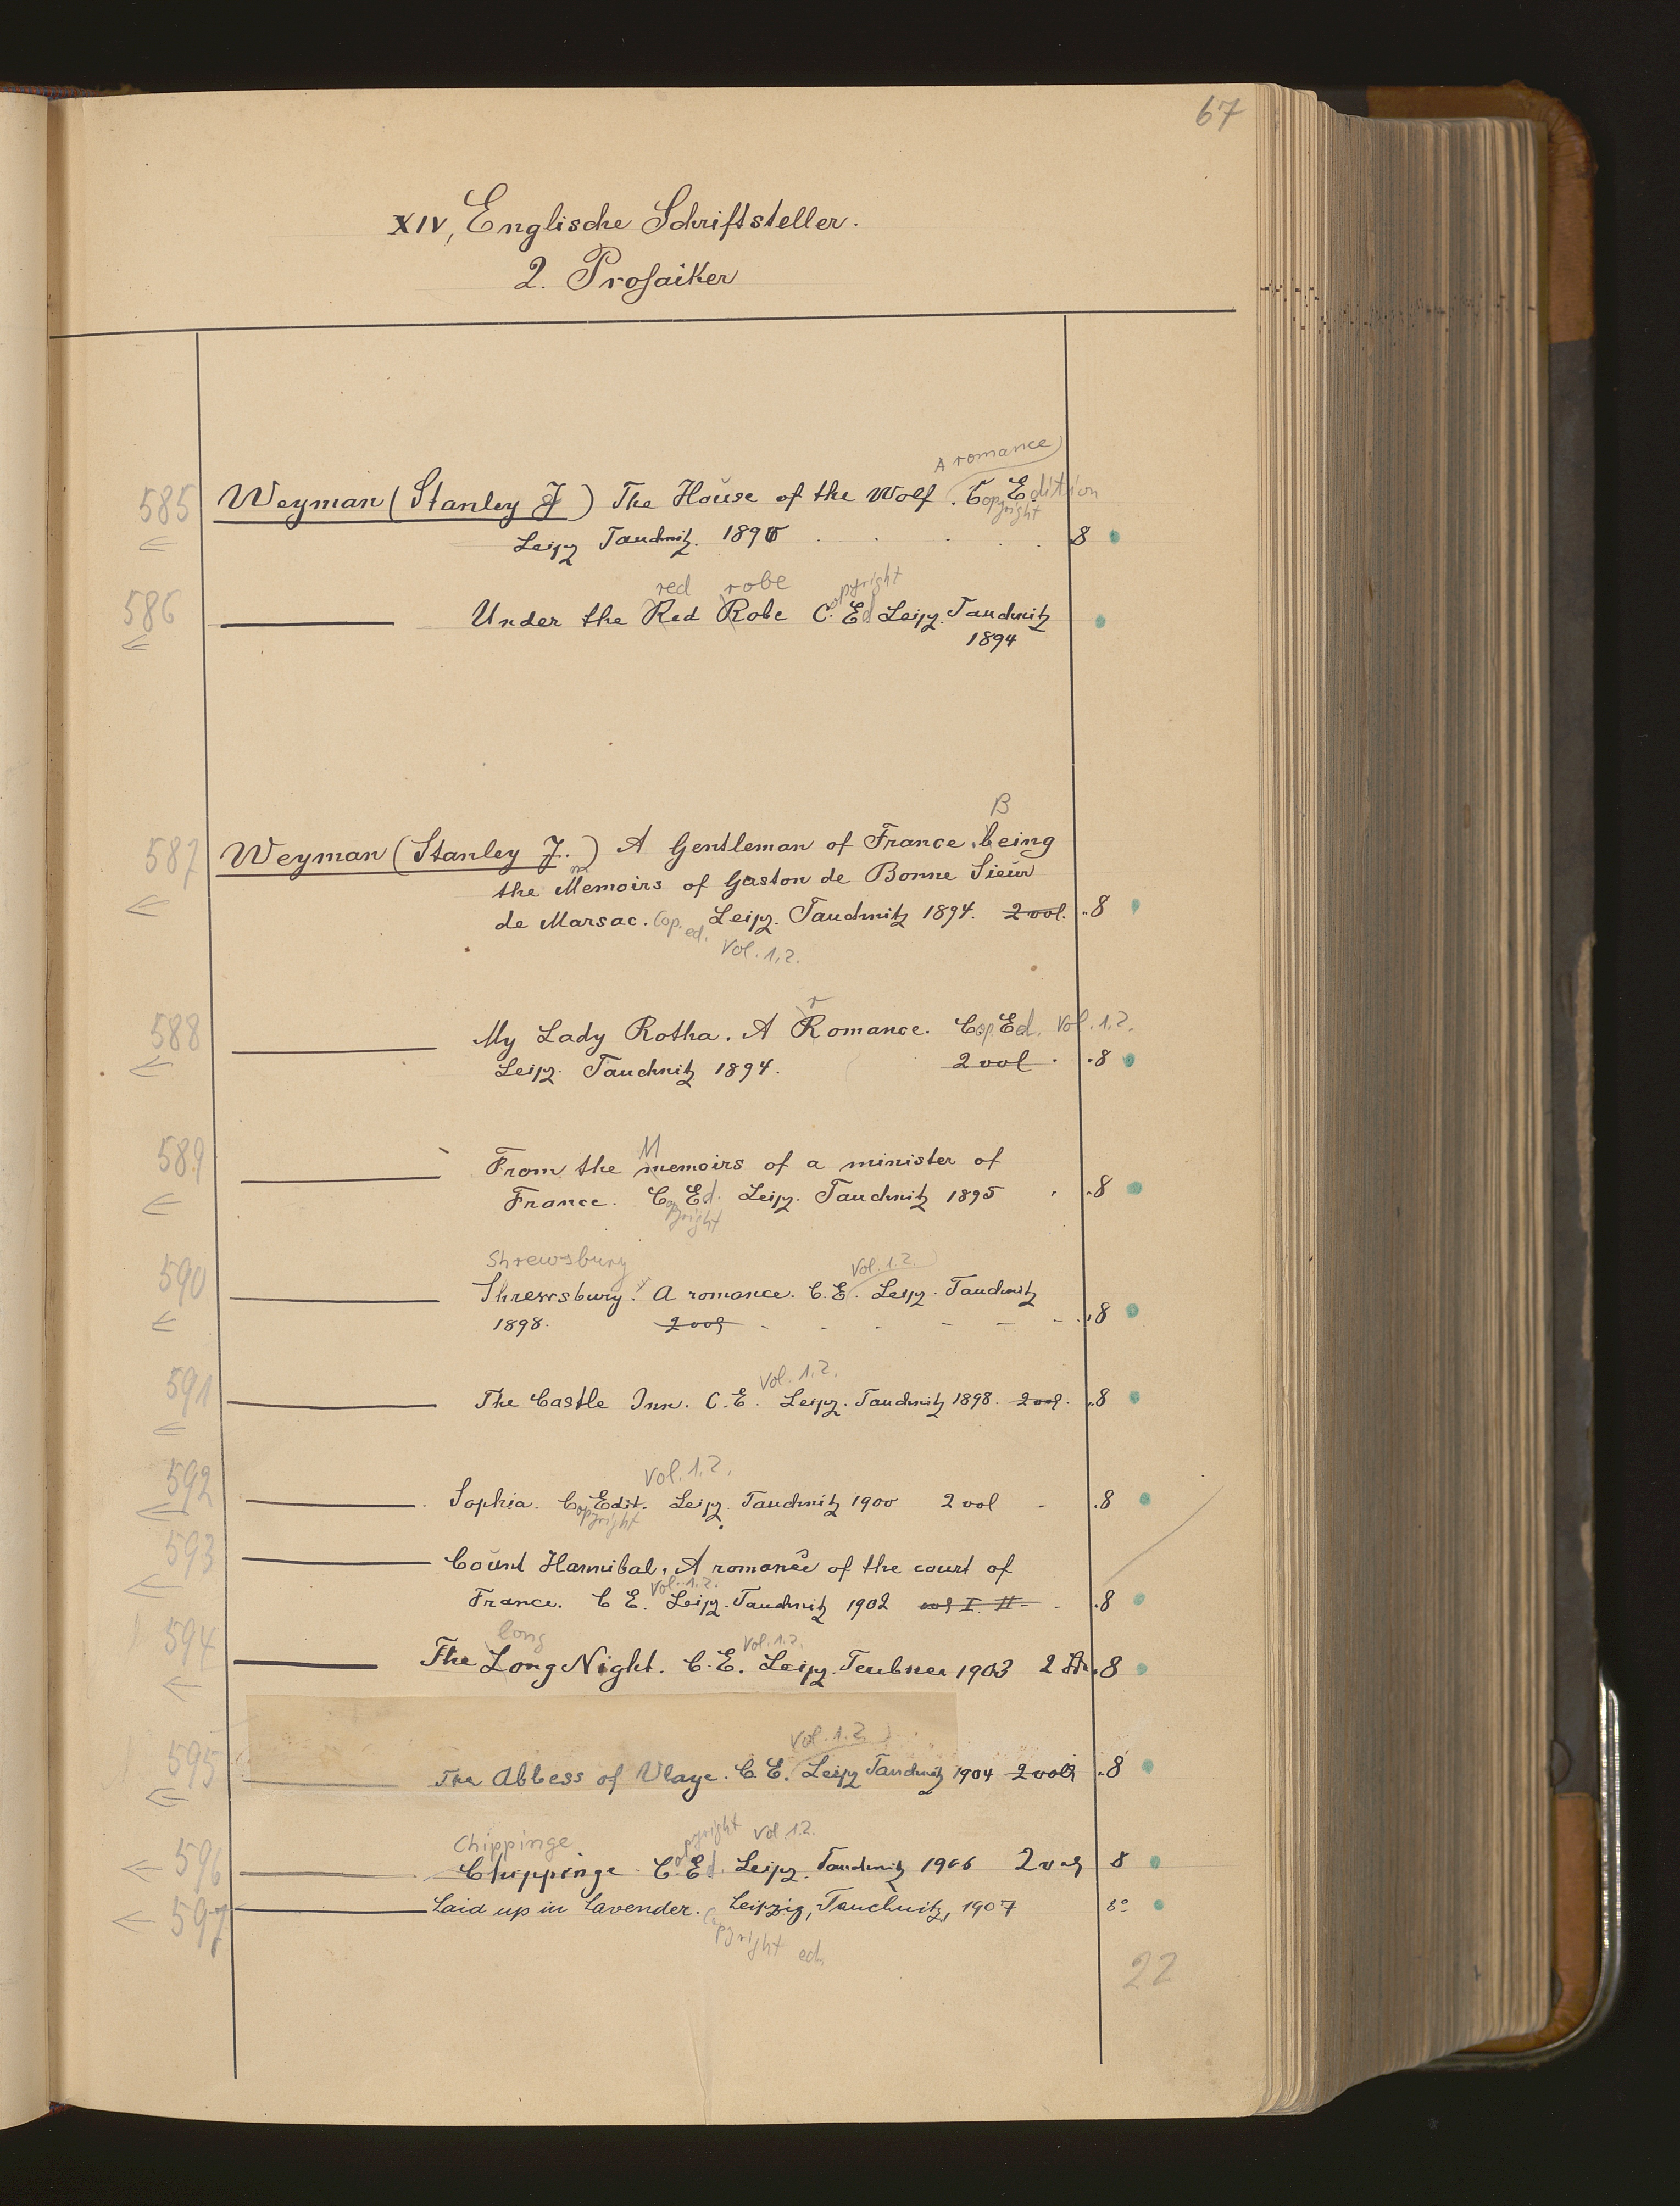 67
XIV, Englische Schriftsteller.
2. Prosaiker
A romance
585 Weyman (Stanley J) The House of the Wolf. Copyright Edition
Leipz Tauchnitz. 1895 . . . . . 8
red robe
586 Under the Red Robe Copyright Ed Leipz. Tauchnitz
1894
B
587 Weyman (Stanley J.) A Gentleman of France. being
the Memoirs of Gaston de Bonne Sieur
de Marsac. Cop. ed. Leipz. Tauchnitz 1894. 2 vol. 8
Vol. 1.2.
r
588 My Lady Rotha. A Romance. Cop Ed. Vol. 1.2.
Leipz. Tauchnitz 1894. 2 vol . 8
M
589 From the memoirs of a minister of
France. Copyright Ed. Leipz. Tauchnitz 1895 . 8
Shrewsbury Vol. 1.2.
590 Shrewsbury. A romance. C.E. Leipz. Tauchnitz
1898. 2 vol - - - - - - 8
Vol. 1.2.
591 The Castle Inn. C.E. Leipz. Tauchnitz 1898. 2 vol. 8
Vol. 1.2.
592 Sophia. Copyright Edit. Leipz. Tauchnitz 1900 2 vol - 8
593 Count Hannibal. A romance of the court of
Vol. 1.2.
France. C E. Leipz. Tauchnitz 1902 vol I. II - 8
long Vol. 1.2.
594 The Long Night. C.E. Leipz. Teubner 1903 2 8
Vol. 1.2.
595 The Abbess of Vlaye. C.E. Leipz Tauchnitz 1904 2 vols 8
Chippinge Vol 1.2.
596 Chippinge. Copyright Ed. Leipz. Tauchnitz 1906 2 vol 8
597 Laid up in Lavender. Leipzig, Tauchnitz, 1907 8°
Copyright ed.
22